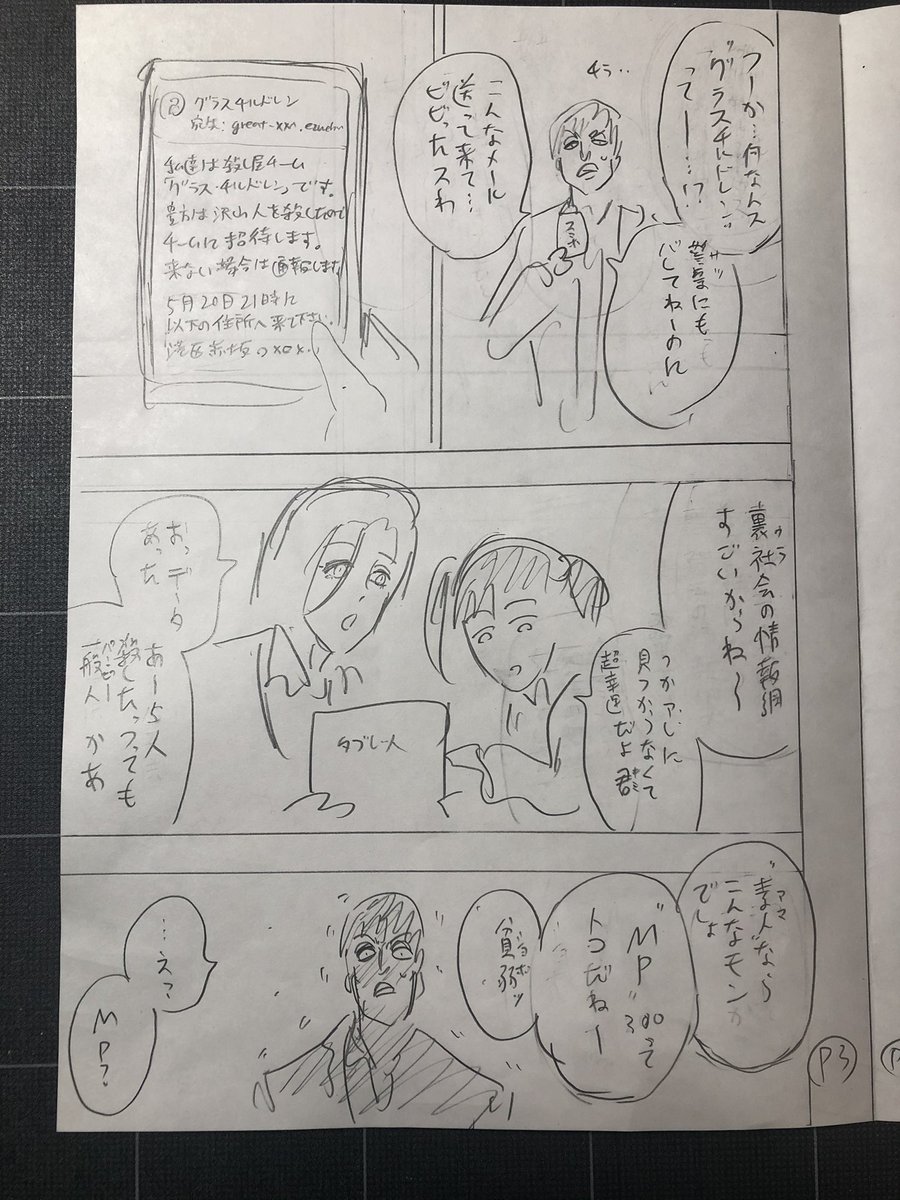 つーか…何なんス
"グラスチルドレン"
って―…!?
サツ
警察にも
バレてねーのに
チラ…
スマホ
こんなメール
送って来て…
ビビったスわ
グラスチルドレン
宛先:
私達は殺し屋チーム
「グラス・チルドレン」です。
貴方は沢山人を殺したので
チームに招待します。
来ない場合は通報します
5月20日21時に
以下の住所へ来て下さい。
港区赤坂の×0×…
ウラ
裏社会の情報網
すごいからね〜
つかアレに
見つからなくて
超幸運だよ君
キミ
タブレット
おっデータ
あった
あー5人
殺したっつっても
一般人かあ
"素人"なら
こんなモンか
でしょ
"MP"300って
トコだねー
貧弱ッ
…え?
MP?
P3